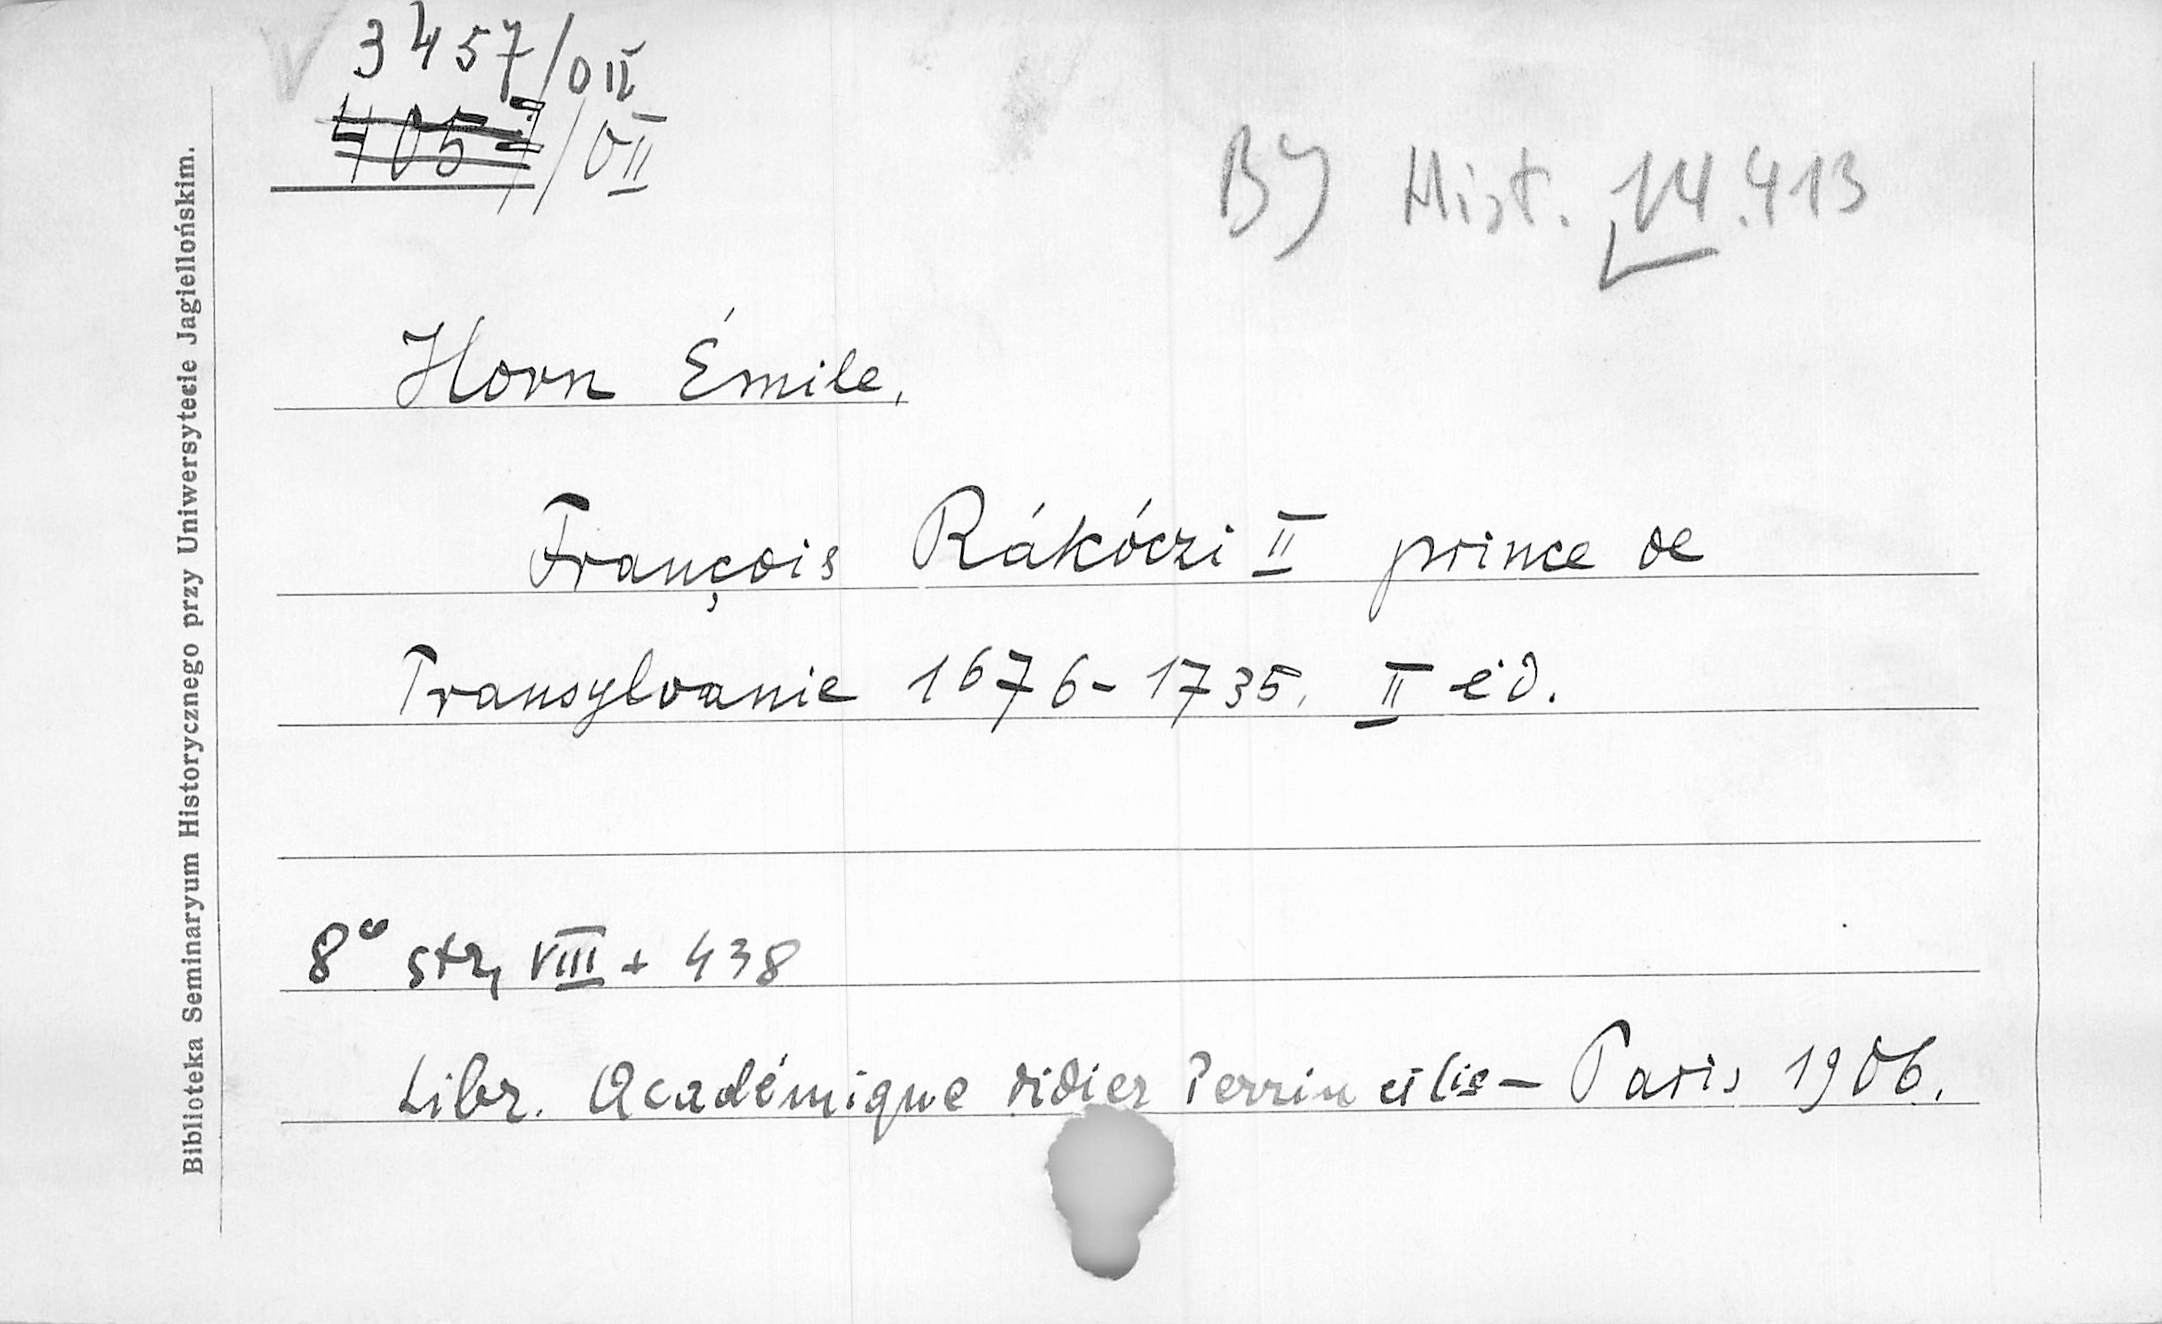 3457/OII
4057/OII
BJ Hist. 14.413
Horn Émile.
François Rákóczi II prince de
Transylvanie 1676-1735. II éd.
8° str, VIII + 438
Libr. Académique Didier Perrin et Cie - Paris 1906.
Biblioteka Seminaryum Historycznego przy Uniwersytecie Jagiellońskim.